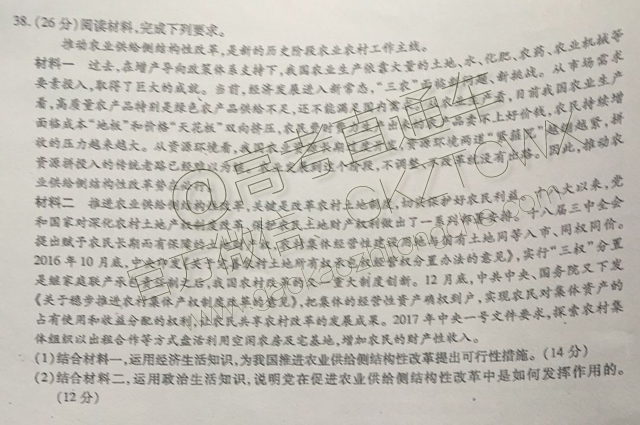 38.(26分)阅读材料,完成下列要求。
推动农业供给侧结构性改革,是新的历史阶段农业农村工作主线。
材料一 过去,在增产导向政策体系支持下,我国农业生产依靠大量的土地、水、化肥、农药、农业机械等
要素投入,取得了巨大的成就。当前,经济发展进入新常态,“三农”面临新问题、新挑战。从市场需求
看,高质量农产品特别是绿色农产品供给不足,还不能满足国内需求。从农业生产看,目前我国农业生产
面临成本“地板”和价格“天花板”双向挤压,农民费时费力生产出来的农产品卖不上好价钱,农民持续增
收的压力越来越大。从资源环境看,我国农业资源长期过度开发,资源环境两道“紧箍咒”越绷越紧,拼
资源拼投入的传统老路已经难以为继。农业发展到这个阶段,不调整、不改革就没有出路。因此,推动农
业供给侧结构性改革势在必行。
材料二 推进农业供给侧结构性改革,关键是改革农村土地制度,切实保护好农民利益。十八大以来,党
和国家对深化农村土地产权制度改革、保护农民土地财产权利做出了一系列部署安排。十八届三中全会
提出赋予农民长期而有保障的土地财产权,农村集体经营性建设用地与国有土地同等入市、同权同价。
2016年10月底,中央印发《关于完善农村土地所有权承包权经营权分置办法的意见》,实行“三权”分置
是继家庭联产承包责任制之后,我国农村改革的又一重大制度创新。12月底,中共中央、国务院又下发
《关于稳步推进农村集体产权制度改革的意见》,把集体的经营性资产确权到户,实现农民对集体资产的
占有使用和收益分配的权利,让农民共享农村改革的发展成果。2017年中央一号文件要求,探索农村集
体组织以出租合作等方式盘活利用空闲农房及宅基地,增加农民的财产性收入。
(1)结合材料一,运用经济生活知识,为我国推进农业供给侧结构性改革提出可行性措施。(14分)
(2)结合材料二,运用政治生活知识,说明党在促进农业供给侧结构性改革中是如何发挥作用的。
(12分)